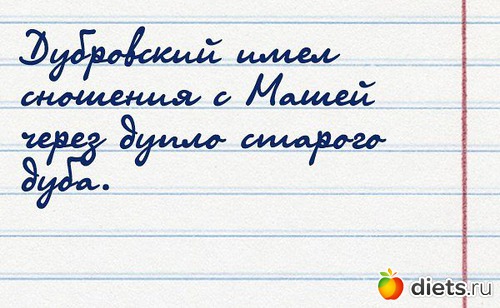 Дубровский имел
сношения с Машей
через дупло старого
дуба.
diets.ru